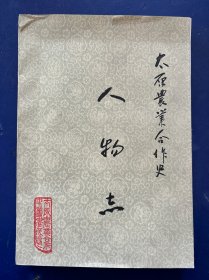 太原农業合作史
人物志